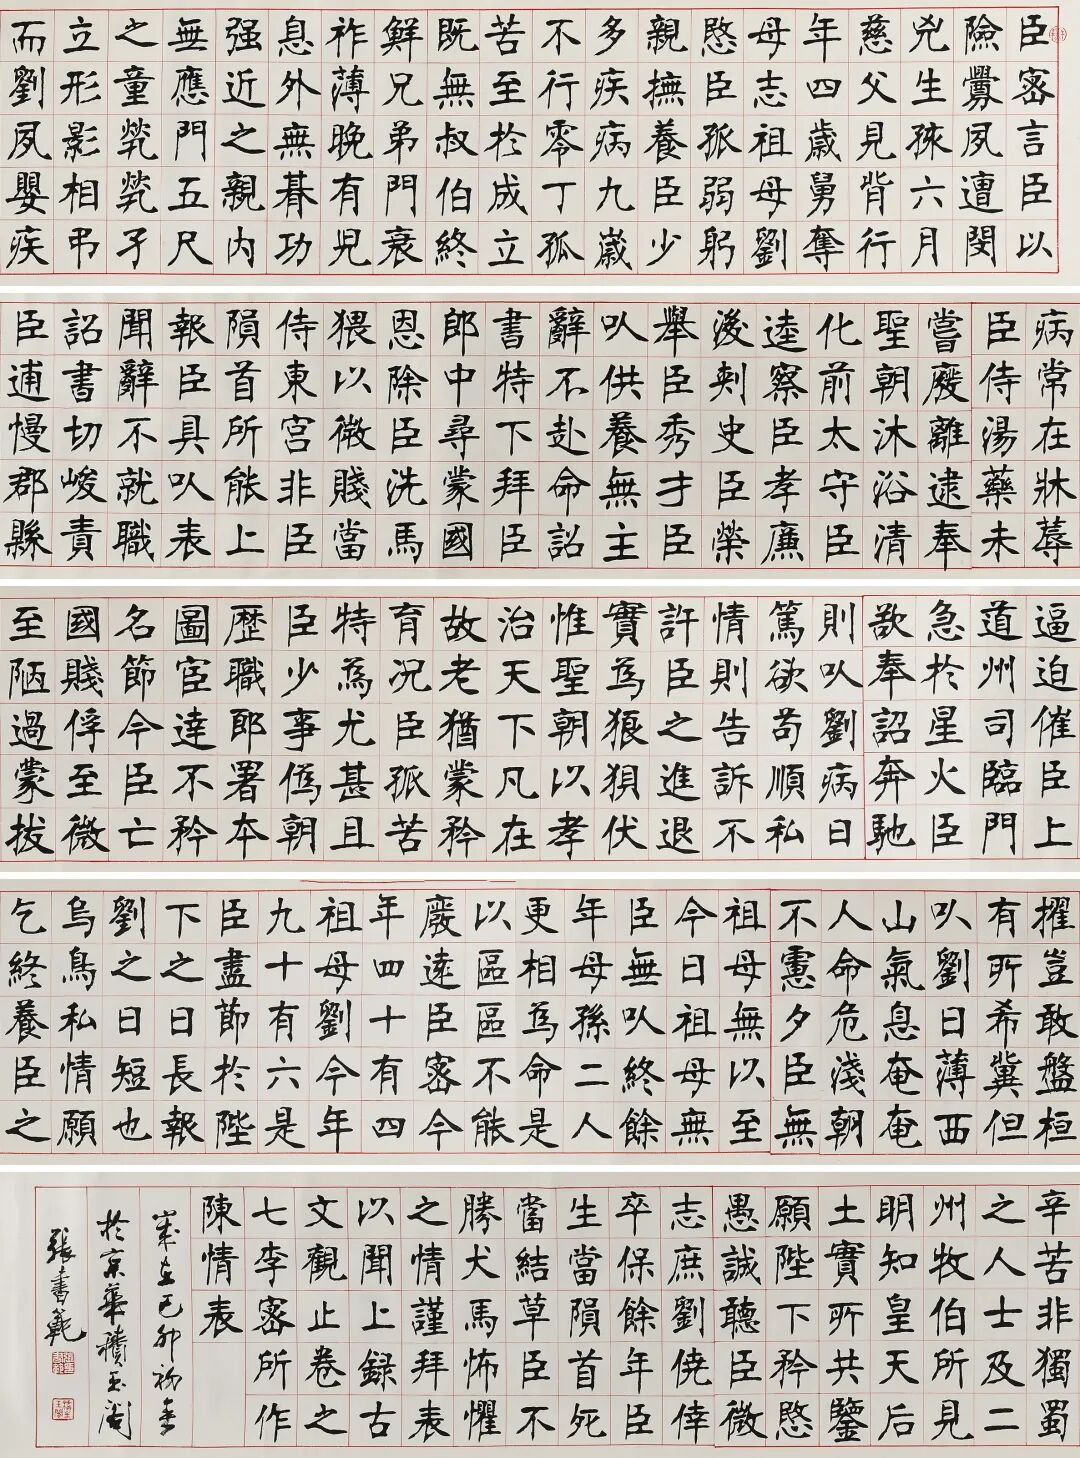 臣密言臣以
險釁夙遭閔
兇生孩六月
慈父見背行
年四歲舅奪
母志祖母劉
愍臣孤弱躬
親撫養臣少
多疾病九歲
不行零丁孤
苦至於成立
既無叔伯終
鮮兄弟門衰
祚薄晚有兒
息外無朞功
强近之親內
無應門五尺
之童煢煢孑
立形影相弔
而劉夙嬰疾
病常在牀蓐
臣侍湯藥未
嘗廢離逮奉
聖朝沐浴清
化前太守臣
逵察臣孝廉
後刺史臣榮
舉臣秀才臣
以供養無主
辭不赴命詔
書特下拜臣
郎中尋蒙國
恩除臣洗馬
猥以微賤當
侍東宮非臣
隕首所能上
報臣具以表
聞辭不就職
詔書切峻責
臣逋慢郡縣
逼迫催臣上
道州司臨門
急於星火臣
欲奉詔奔馳
則以劉病日
篤欲苟順私
情則告訴不
許臣之進退
實為狼狽伏
惟聖朝以孝
治天下凡在
故老猶蒙矜
育况臣孤苦
特為尤甚且
臣少事偽朝
歷職郎署本
圖宦達不矜
名節今臣亡
國賤俘至微
至陋過蒙拔
擢豈敢盤桓
有所希冀但
以劉日薄西
山氣息奄奄
人命危淺朝
不慮夕臣無
祖母無以至
今日祖母無
臣無以終餘
年母孫二人
更相為命是
以區區不能
廢遠臣密今
年四十有四
祖母劉今年
九十有六是
臣盡節於陛
下之日長報
劉之日短也
烏鳥私情願
乞終養臣之
辛苦非獨蜀
之人士及二
州牧伯所見
明知皇天后
土實所共鑒
願陛下矜愍
愚誠聽臣微
志庶劉僥倖
卒保餘年臣
生當隕首死
當結草臣不
勝犬馬怖懼
之情謹拜表
以聞上録古
文觀止卷之
七李密所作
陳情表
歲在己卯初春
於京華積玉閣
張書範